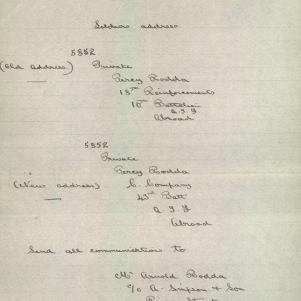 Soldiers address
5852
(Old Address) Private
Percy Rodda
13th Reinforcements
10th Battalion
A.I.F
Abroad
5852
Private
Percy Rodda
(New address) C. Company
43rd Batt
A.I.F
Abroad
Send all communication to
Mr Arnold Rodda
c/o A. Simpson & Son